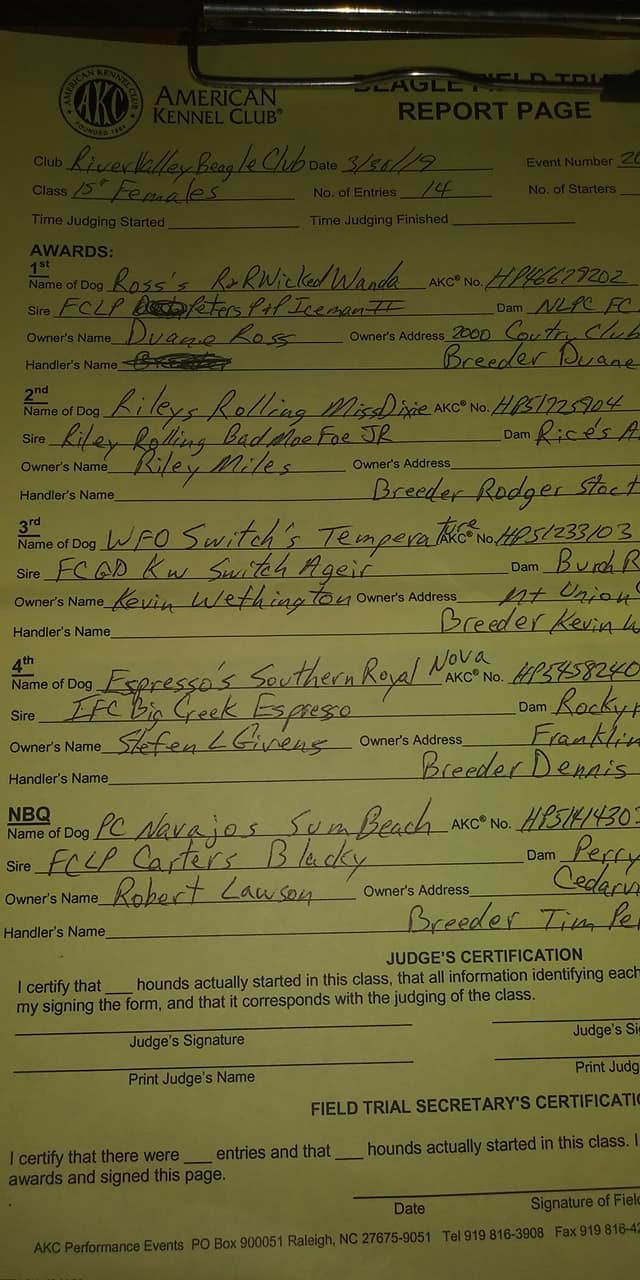 BEAGLE FIELD TRI
REPORT PAGE
AMERICAN KENNEL CLUB
AKC
FOUNDED 1884
AMERICAN
KENNEL CLUB®
Club River Valley Beagle Club Date 3/30/19 Event Number 20
Class 15" Females No. of Entries 14 No. of Starters
Time Judging Started Time Judging Finished
AWARDS:
1st
Name of Dog Ross's R&R Wicked Wanda AKC® No. HP46679202
Sire FCLP Peters P+P Iceman II Dam NLPC FC
Owner's Name Duane Ross Owner's Address 2000 Coutry Club
Handler's Name Breeder Duane
2nd
Name of Dog Rileys Rolling Miss Dixie AKC® No. HP51725904
Sire Riley Rolling Bad Moe Foe JR Dam Rice's A
Owner's Name Riley Miles Owner's Address
Handler's Name Breeder Rodger Stoct
3rd
Name of Dog WFO Switch's Temperature AKC® No. HP51233103
Sire FCGD KW Switch Ageir Dam Burch R
Owner's Name Kevin Wethington Owner's Address Mt Union
Handler's Name Breeder Kevin W
4th
Name of Dog Espresso's Southern Royal Nova AKC® No. HP5458240
Sire IFC Big Creek Espresso Dam Rocky
Owner's Name Stefen L Givens Owner's Address Franklin
Handler's Name Breeder Dennis
NBQ
Name of Dog PC Navajos Sum Beach AKC® No. HP5141430
Sire FCLP Carters Blacky Dam Perry
Owner's Name Robert Lawson Owner's Address Cedarvi
Handler's Name Breeder Tim Pe
JUDGE'S CERTIFICATION
I certify that ___ hounds actually started in this class, that all information identifying each
my signing the form, and that it corresponds with the judging of the class.
Judge's Signature Judge's Si
Print Judge's Name Print Judg
FIELD TRIAL SECRETARY'S CERTIFICATIO
I certify that there were ___ entries and that ___ hounds actually started in this class. I
awards and signed this page.
Date Signature of Fiel
AKC Performance Events PO Box 900051 Raleigh, NC 27675-9051 Tel 919 816-3908 Fax 919 816-42